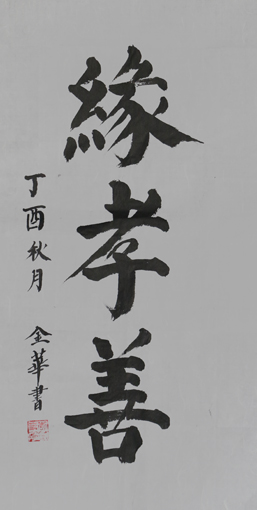 緣孝善
丁酉秋月 金華書